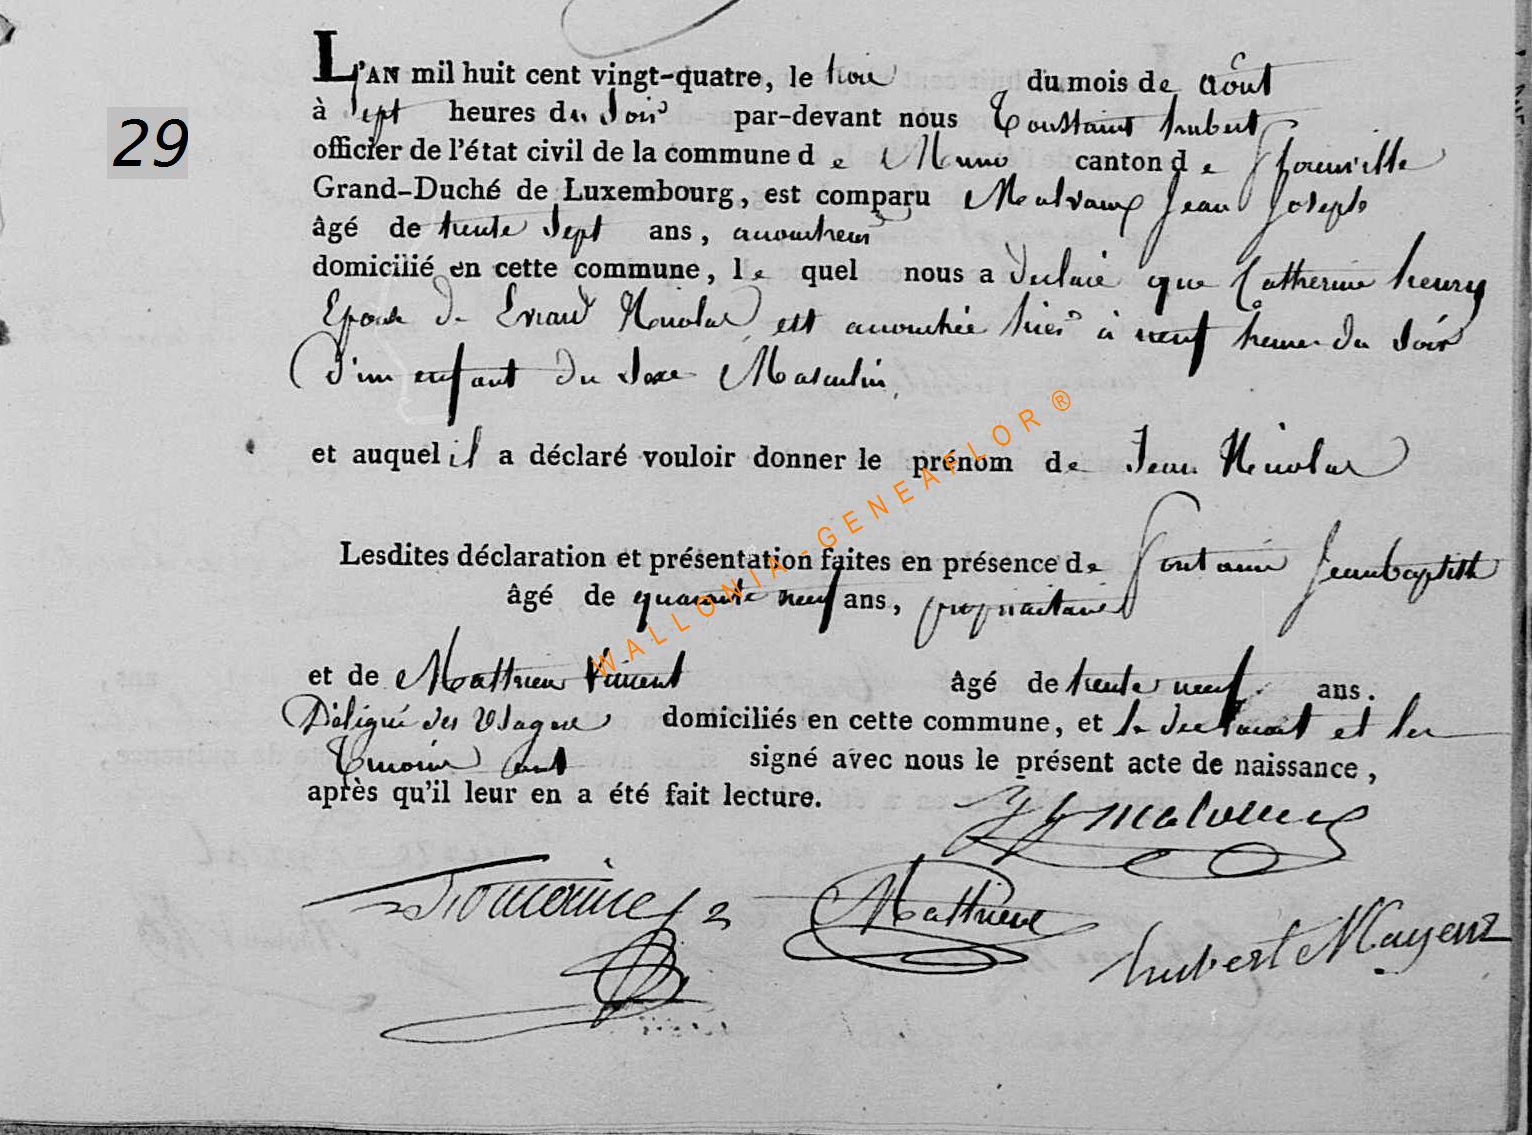 29
L'AN mil huit cent vingt-quatre, le trois du mois de Août
à Sept heures du Soir par-devant nous Toustaint hubert
officier de l'état civil de la commune de Muno canton de Florenville
Grand-Duché de Luxembourg, est comparu Malvaux Jean Joseph
âgé de trente Sept ans, accoucheur
domicilié en cette commune, le quel nous a declaré que Catherine henry
Epouse de Evrard Nicolas est accouchée hier à neuf heures du Soir
D'un enfant du Sexe Masculin
et auquel il a déclaré vouloir donner le prénom de Jean Nicolas
Lesdites déclaration et présentation faites en présence de Fontaine Jeanbaptiste
âgé de quarante neuf ans, propriétaire
et de Matthieu Vincent âgé de trente neuf ans.
Déligué des Usagers domiciliés en cette commune, et le declarant et les
Temoins ont signé avec nous le présent acte de naissance,
après qu'il leur en a été fait lecture.
JJ Malvaux
Fontaine
Matthieu
hubert Mayeur
WALLONIA-GENEAFLOR®